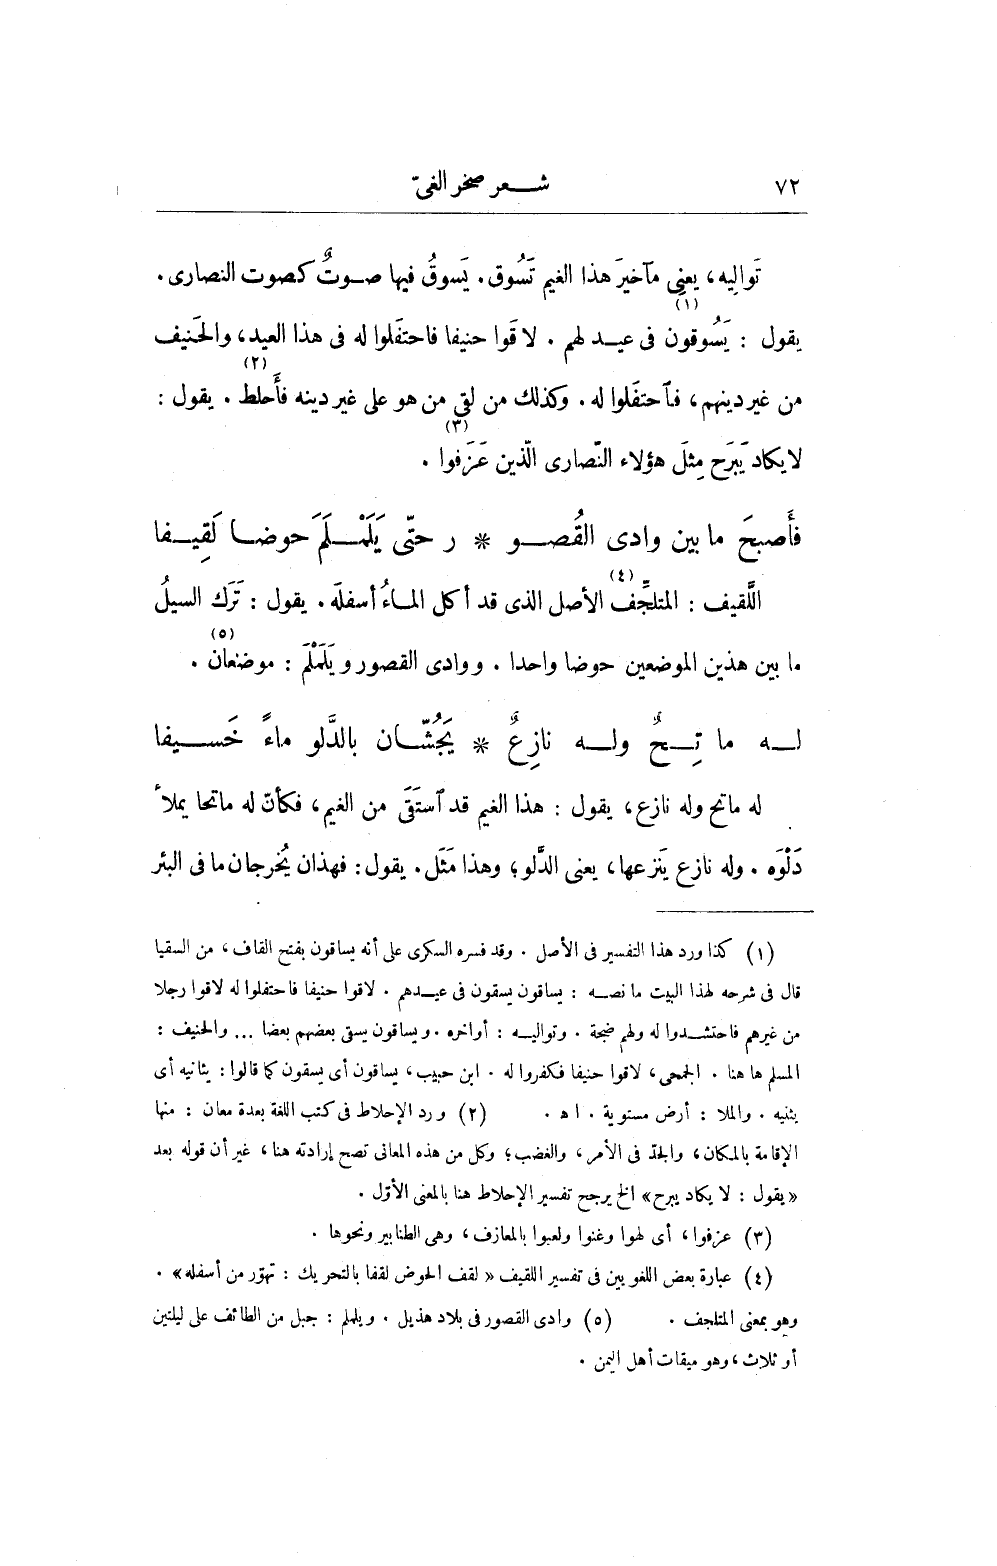 ٧٢ شعر صخر الغىّ
تَوالِيه، يعنِى مآخيرَ هذا الغيم تَسُوق. يَسوقُ فيها صوتٌ كصوت النصارى.
يقول : يَسُوقون (١) فى عيد لهم. لاقَوا حنيفا فاحتفَلوا له فى هذا العيد، والحَنيف
من غير دينهم، فاحتفَلوا له. وكذلك من لقى من هو على غير دينه فأَحلط (٢). يقول :
لا يكاد يَبرَح مِثلَ هؤلاء النّصارى الّذين عَزَفوا (٣).
فأَصبحَ ما بين وادى القُصو * ر حتّى يَلَمْلَمَ حوضا لَقِيفا
اللَّقيف : المتلجِّف (٤) الأصل الذى قد أكل الماءُ أسفلَه. يقول : تَرَك السيلُ
ما بين هذين الموضعين حوضا واحدا. ووادى القصور ويَلَمْلَم : موضعان (٥).
له ما تِحٌ وله نازِعٌ * يَجُشّان بالدَّلو ماءً خَسيفا
له ماتح وله نازع، يقول : هذا الغيم قد آستَقَى من الغيم، فكأنّ له ماتحا يملأ
دَلْوَه. وله نازع يَنزعها، يعنى الدَّلو؛ وهذا مَثَل. يقول: فهذان يُخرجان ما فى البئر
(١) كذا ورد هذا التفسير فى الأصل. وقد فسره السكرى على أنه يساقون بفتح القاف، من السقيا
قال فى شرحه لهذا البيت ما نصه : يساقون يسقون فى عيدهم. لاقوا حنيفا فاحتفلوا له لاقوا رجلا
من غيرهم فاحتشدوا له ولهم ضجة. وتواليه : أواخره. ويساقون يسقى بعضهم بعضا ... والحنيف :
المسلم ها هنا. الجمحى، لاقوا حنيفا فكفروا له. ابن حبيب، يساقون أى يسقون كما قالوا : يثانيه أى
يثنيه. والملا : أرض مستوية. اه. (٢) ورد الإحلاط فى كتب اللغة بعدة معان : منها
الإقامة بالمكان، والجدّ فى الأمر، والغضب؛ وكل من هذه المعانى تصح إرادته هنا، غير أن قوله بعد
«يقول : لا يكاد يبرح» الخ يرجح تفسير الإحلاط هنا بالمعنى الأوّل.
(٣) عزفوا، أى لهوا وغنوا ولعبوا بالمعازف، وهى الطنابير ونحوها.
(٤) عبارة بعض اللغويين فى تفسير اللقيف «لقف الحوض لقفا بالتحريك : تهوّر من أسفله».
وهو بمعنى المتلجف. (٥) وادى القصور فى بلاد هذيل. ويلملم : جبل من الطائف على ليلتين
أو ثلاث، وهو ميقات أهل اليمن.